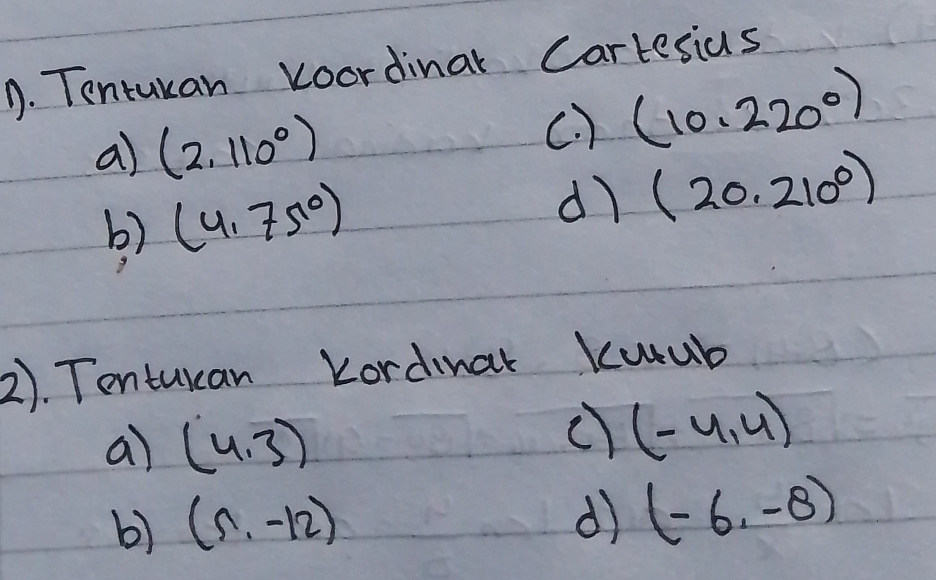 1). Tentukan Koordinat Cartesius
a) (2. 110°) c.) (10. 220°)
b) (4. 75°) d) (20. 210°)
2). Tentukan Kordinat Kutub
a) (4.3) c) (-4,4)
b) (5. -12) d) (-6. -8)